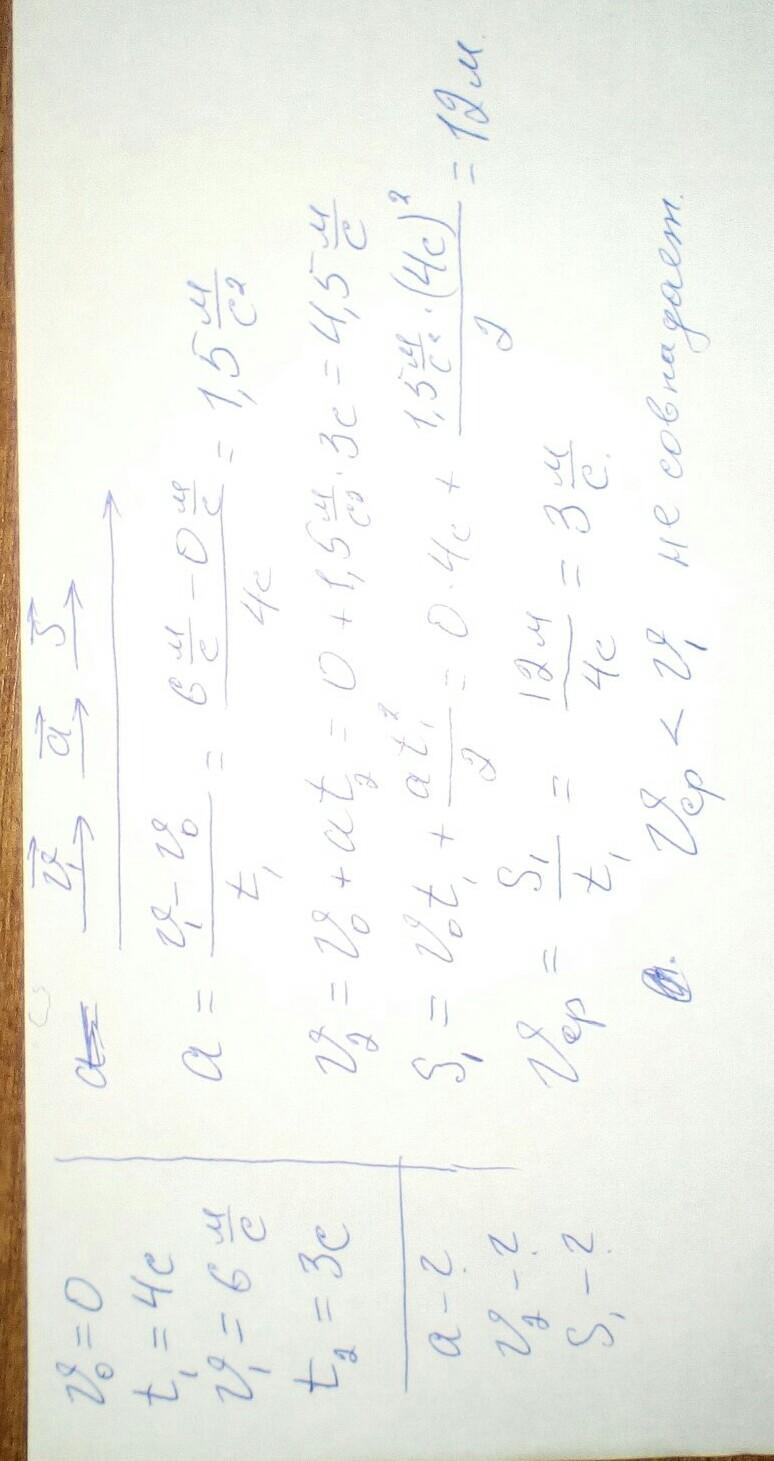 v₀ = 0
t₁ = 4с
v₁ = 6 м/с
t₂ = 3с
a - ?
v₂ - ?
S₁ - ?
v₁ a S
a = (v₁ - v₀)/t₁ = (6 м/с - 0 м/с)/4с = 1,5 м/с²
v₂ = v₀ + at₂ = 0 + 1,5 м/с² · 3с = 4,5 м/с
S₁ = v₀t₁ + at₁²/2 = 0 · 4с + (1,5 м/с² · (4с)²)/2 = 12 м.
vср = S₁/t₁ = 12м/4с = 3 м/с.
vср < v₁ не совпадает.